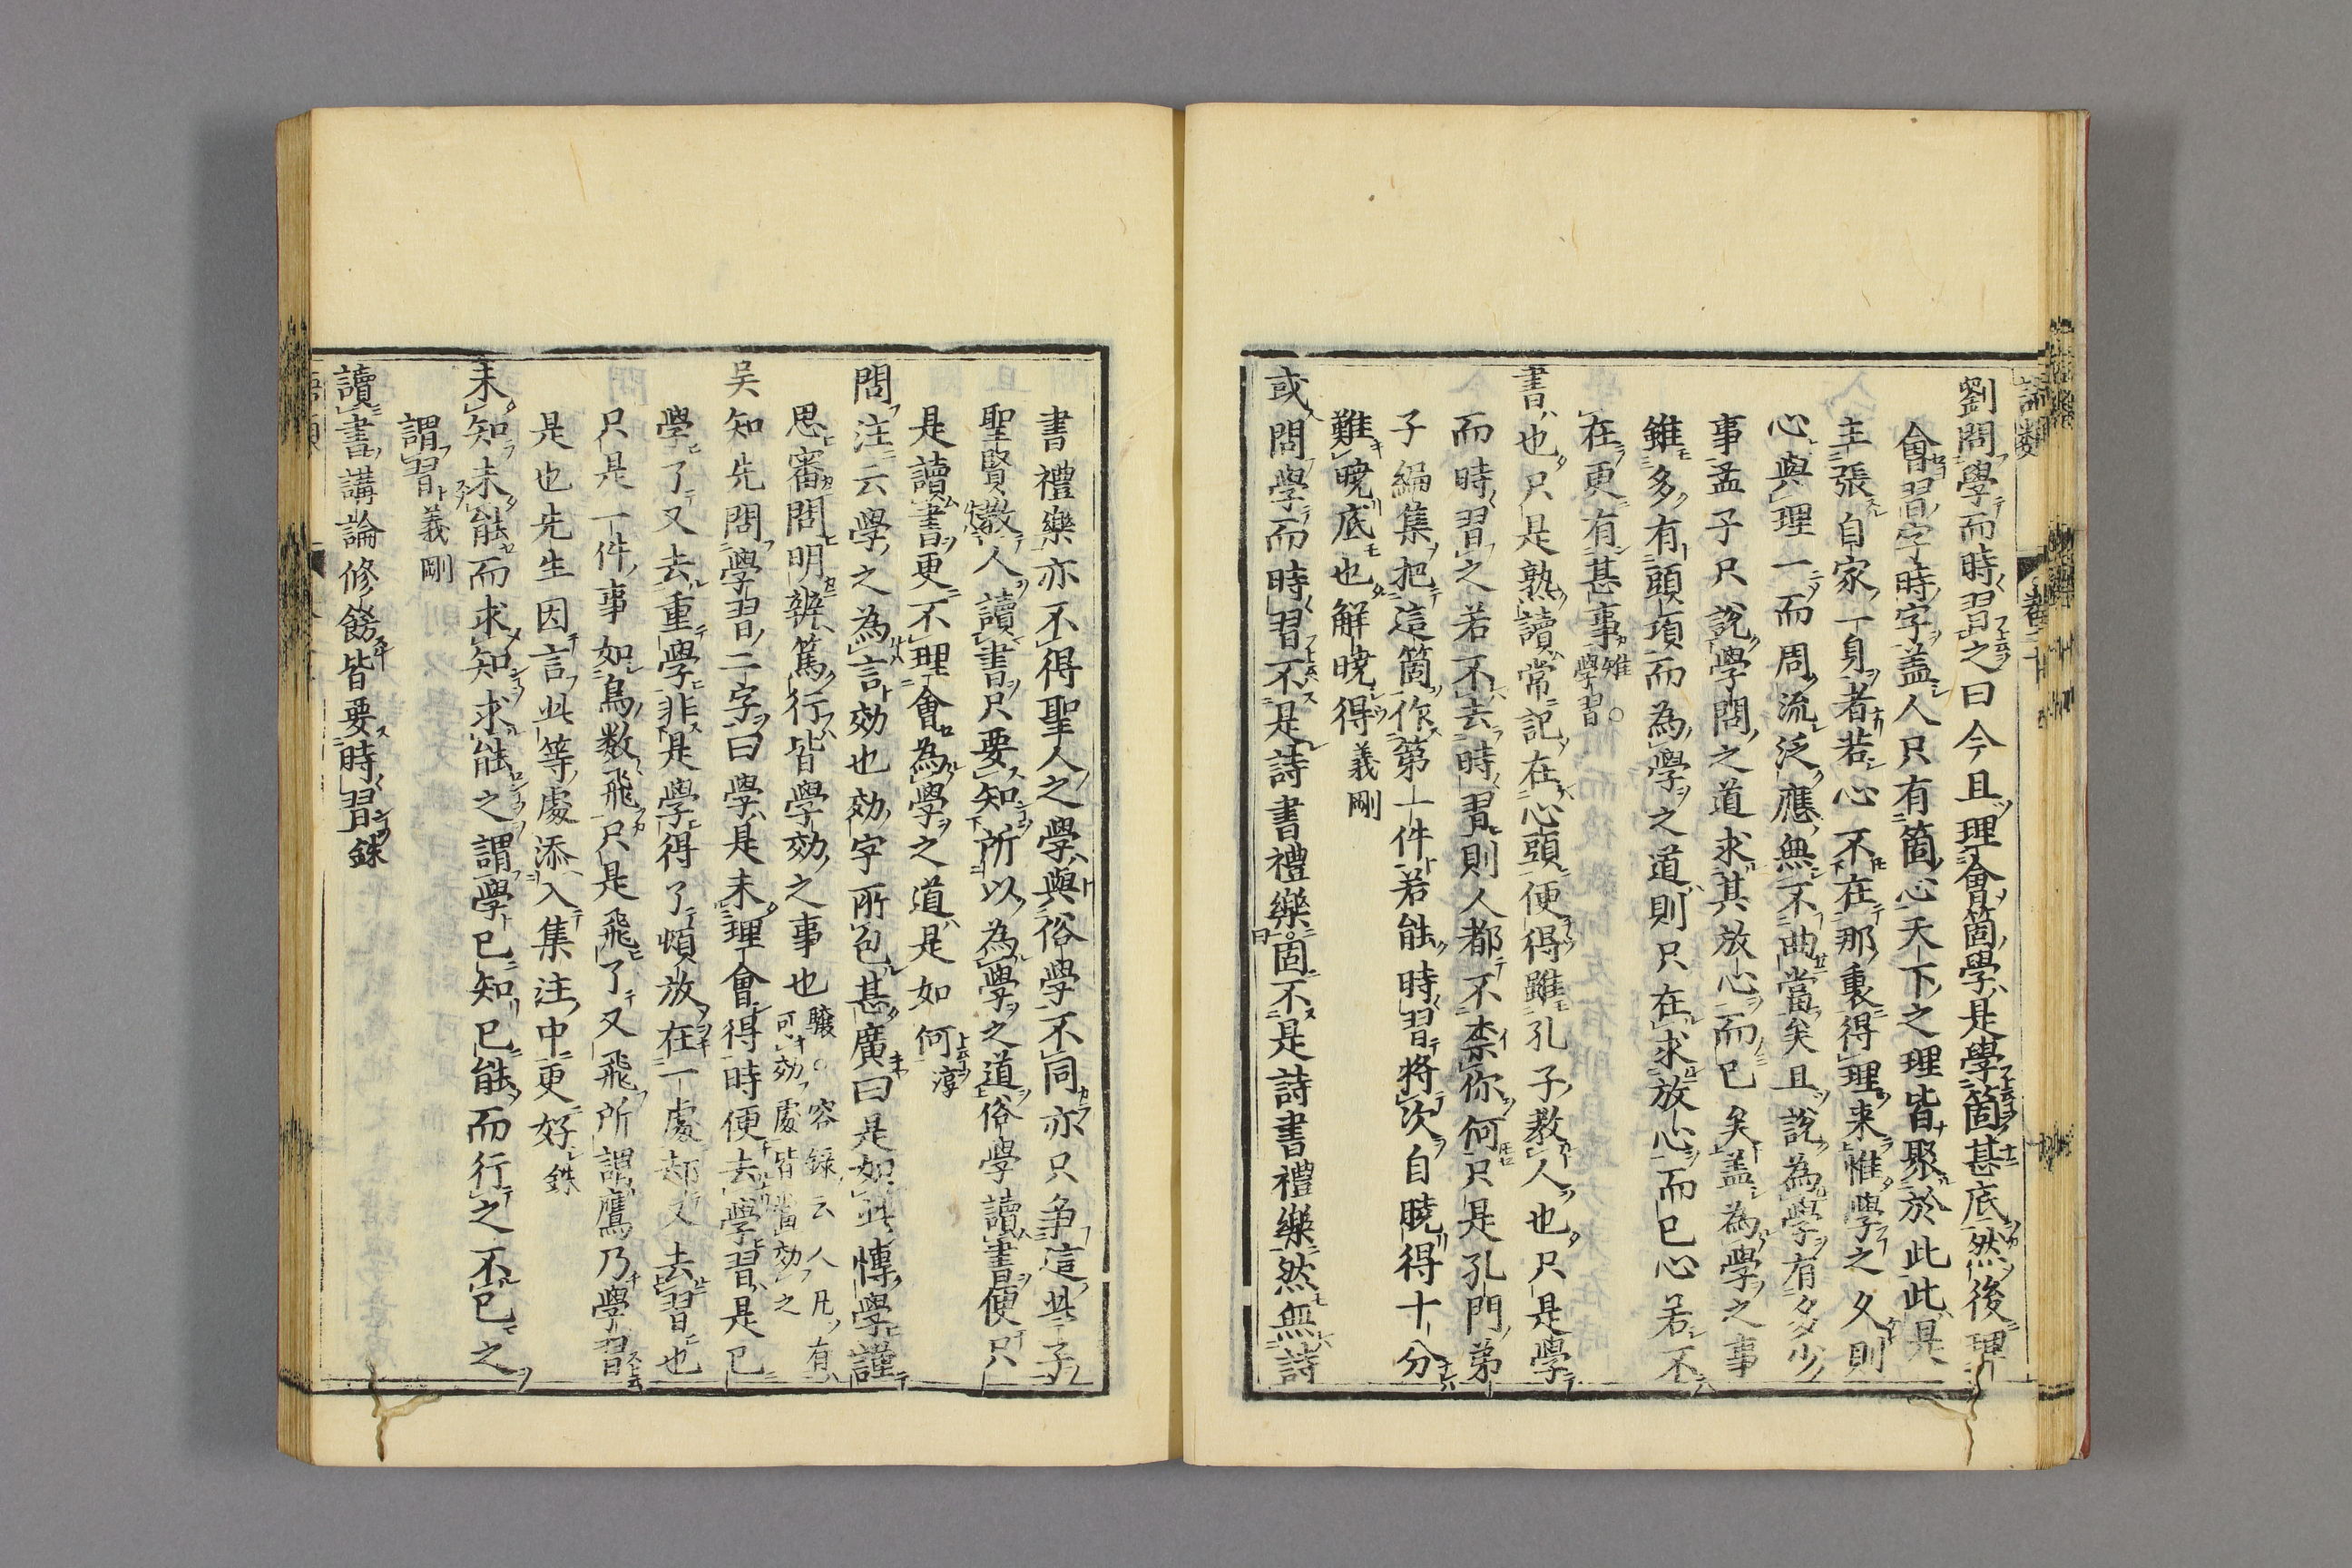 劉問學而時習之曰今且理會箇學是學箇甚底然後理
會習字時字盖人只有箇心天下之理皆聚於此此是
主張自家一身者若心不在那裏得理来惟學之久則
心與理一而周流泛應無不曲當矣且說為學有多少
事孟子只說學問之道求其放心而已矣盖為學之事
雖多有頭項而為學之道則只在求放心而已心若不
在更有甚事雉學習
書也只是熟讀常記在心頭便得雖孔子教人也只是學
而時習之若不去時習則人都不柰你何只是孔門弟
子編集把這箇作第一件若能時習将次自曉得十分
難曉底也解曉得義剛
或問學而時習不是詩書禮樂固不是詩書禮樂然無詩
書禮樂亦不得聖人之學與俗學不同亦只争這些子
聖賢教人讀書只要知所以為學之道俗學讀書便只
是讀書更不理會為學之道是如何淳
問注云學之為言効也効字所包甚廣曰是如此慱學謹
思審問明辨篤行皆學効之事也驤○容録云人凡有
可効處皆當効之
吴知先問學習二字曰學是未理會得時便去學習是已
學了又去重學非是學得了頓放在一處却又去習也
只是一件事如鳥数飛只是飛了又飛所謂鷹乃學習
是也先生因言此等處添入集注中更好銖
未知未能而求知求能之謂學已知已能而行之不已之
謂習義剛
讀書講論修飭皆要時習銖